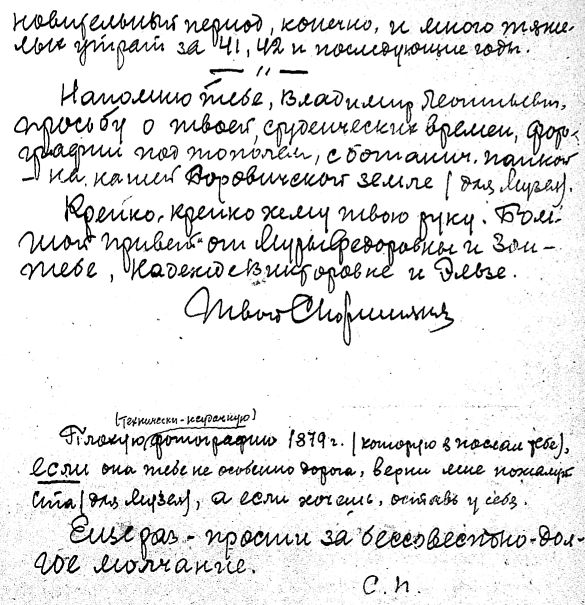 новительный период, конечно, и много тяже-
лых утрат за 41, 42 и последующие годы.
— " —
Напомню тебе, Владимир Леонтьевич,
просьбу о твоей, студенческих времен, фото-
графии под тополем, с ботанич. папкой
– на нашей Боровичской земле (для Музея).
Крепко-крепко жму твою руку. Боль-
шой привет от Муры Федоровны и Зои –
тебе, Надежде Викторовне и Эльзе.
Твой
(технически-неудачную)
Плохую фотографию 1879 г. (которую я послал тебе),
если она тебе не особенно дорога, верни мне пожалуй-
ста (для Музея), а если хочешь, оставь у себя.
Еще раз – прости за бессовестно-дол-
гое молчание.
С. П.